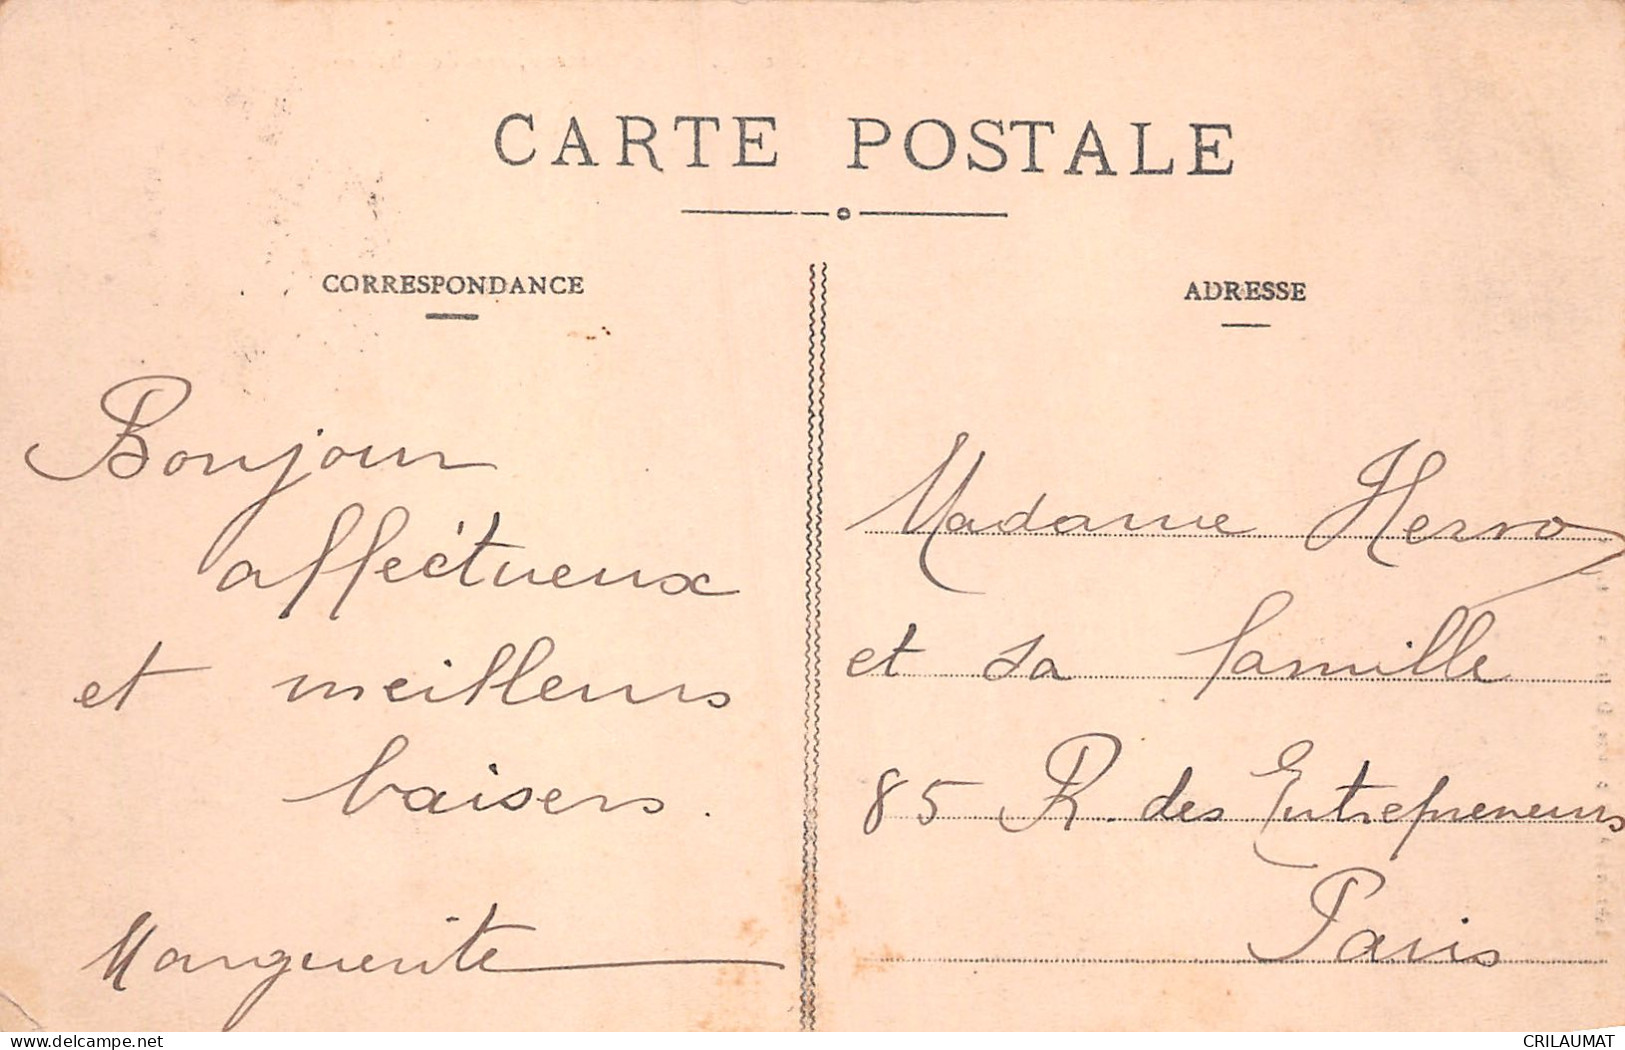 CARTE POSTALE
CORRESPONDANCE
Bonjour
affectueux
et meilleurs
baisers.
Marguerite
ADRESSE
Madame Hervo
et sa famille
85 R. des Entrepreneurs
Paris
www.delcampe.net
CRILAUMAT